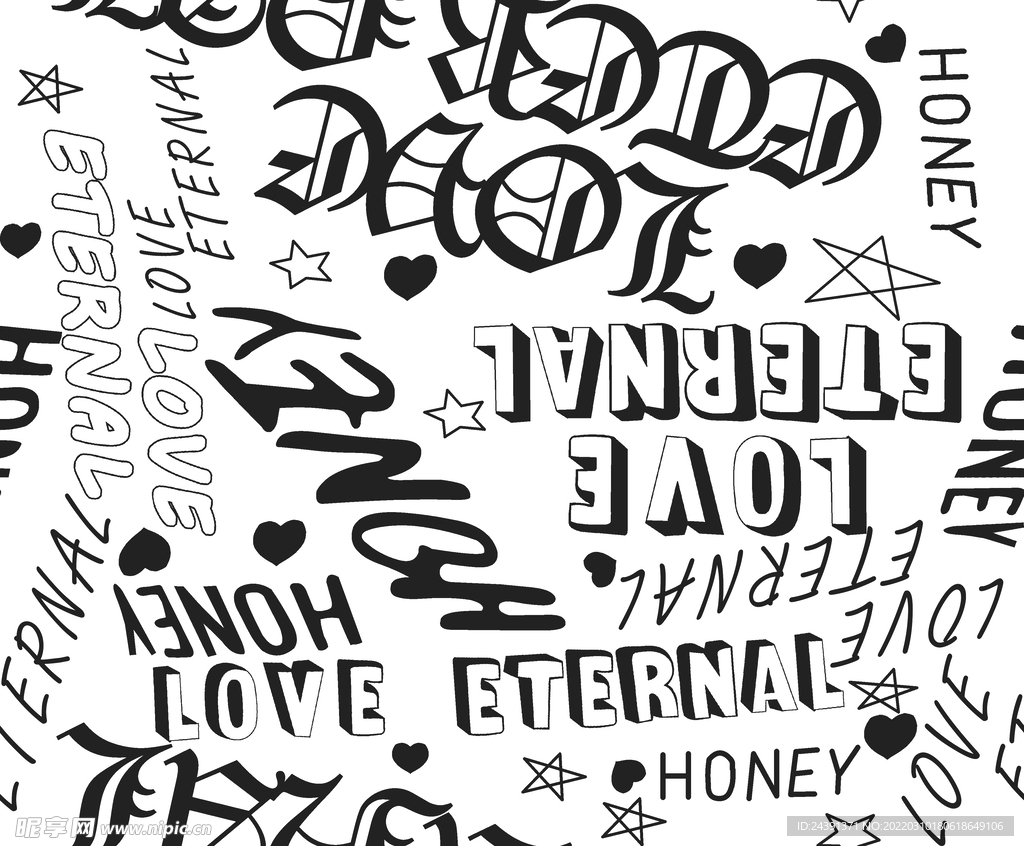 HONEY
ETERNAL
ETERNAL
LOVE
LOVE
LOVE
HONEY
ETERNAL
LOVE
HONEY
ETERNAL
LOVE
ETERNAL
HONEY
LOVE
ETERNAL
LOVE
HONEY
昵享网 www.nipic.cn
ID:24391371 NO:20220310180618649106